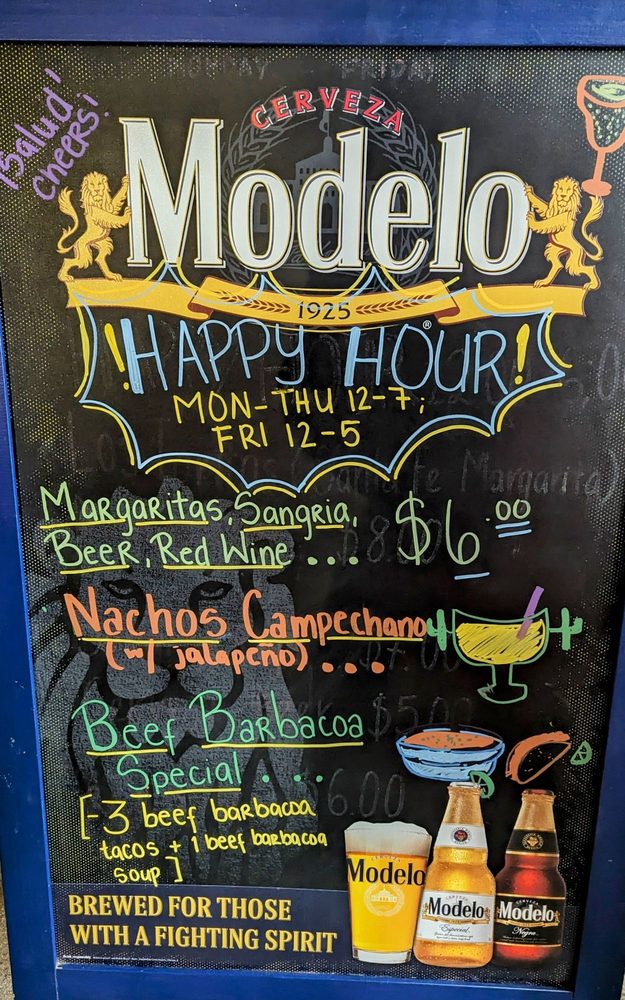 ¡Salud!
cheers!
CERVEZA
Modelo
1925
®
!HAPPY HOUR!
MON-THU 12-7;
FRI 12-5
Margaritas, Sangria,
Beer, Red Wine . . . . $6.00
Nachos Campechano
(w/ jalapeño) . . . .
Beef Barbacoa
Special . . . .
[-3 beef barbacoa
tacos + 1 beef barbacoa
soup ]
BREWED FOR THOSE
WITH A FIGHTING SPIRIT
Modelo
Modelo
Especial
CERVEZA
Modelo
Negra